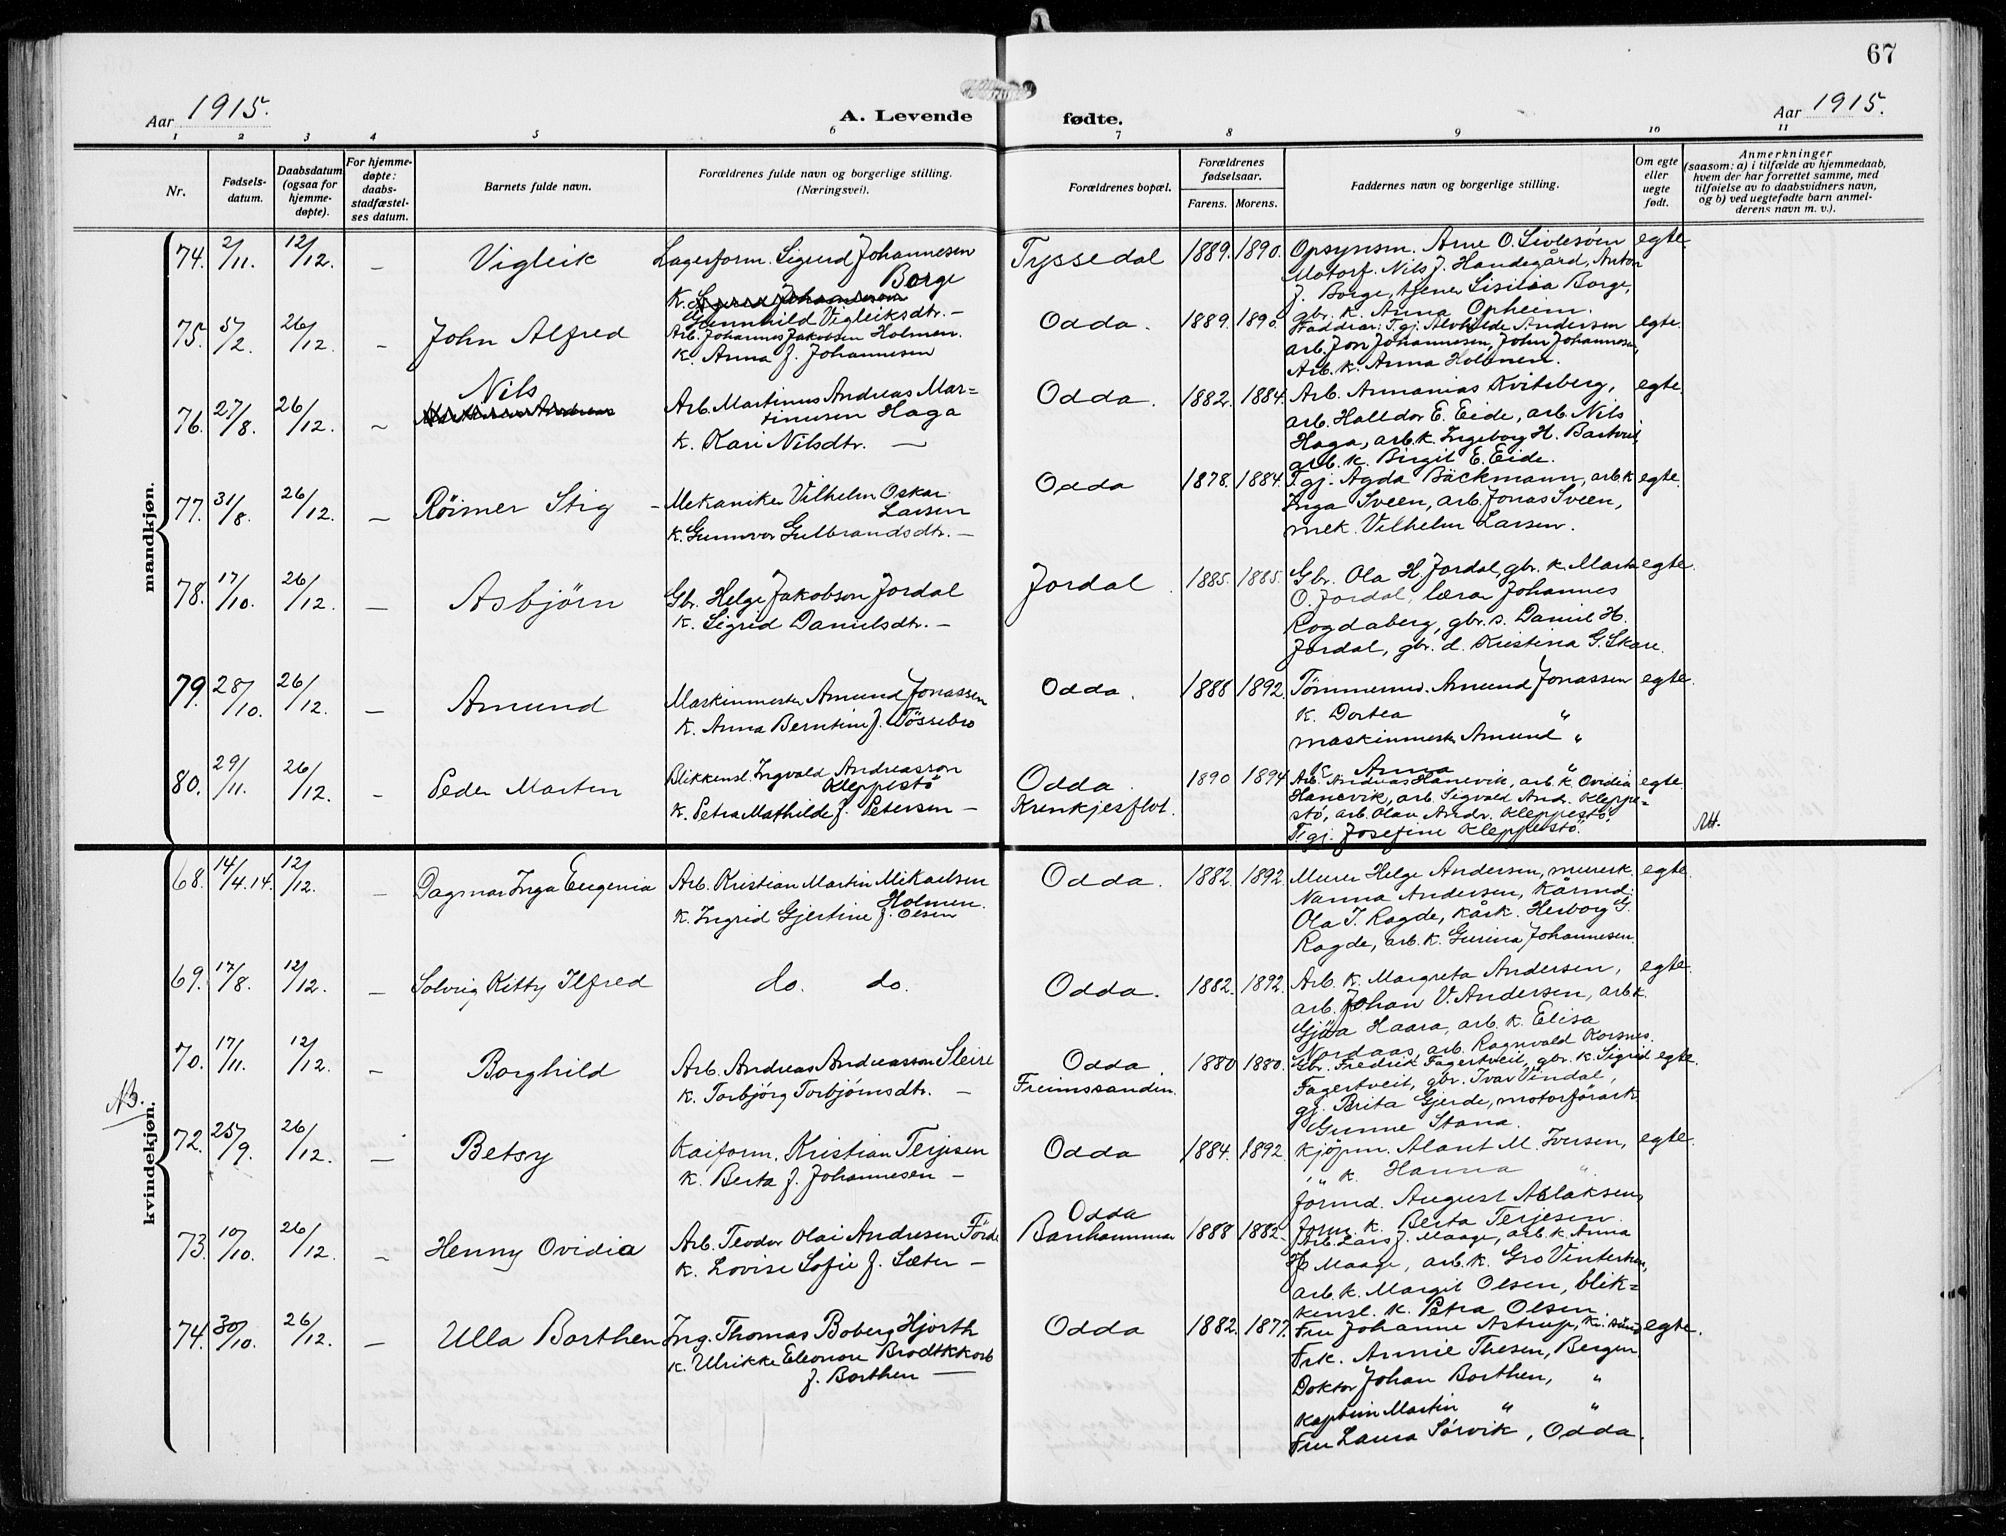 67
Aar 1915.
A. Levende fødte.
Aar 1915.
1 2 3 4 5 6 7 8 9 10 11
Nr.
Fødsels-
datum.
Daabsdatum
(ogsaa for
hjemme-
døpte).
For hjemme-
døpte:
daabs-
stadfæstel-
ses datum.
Barnets fulde navn.
Forældrenes fulde navn og borgerlige stilling.
(Næringsvei).
Forældrenes bopæl.
Forældrenes
fødselsaar.
Farens. Morens.
Faddernes navn og borgerlige stilling.
Om egte
eller
uegte
født.
Anmerkninger
(saasom: a) i tilfælde av hjemmedaab,
hvem der har forrettet samme, med
tilføielse av to daabsvidners navn,
og b) ved uegtefødte barn anmel-
derens navn m. v.).
mandkjøn.
74. 2/11. 12/12. – Vigleik
Lagerform. Sigurd Johannesen
Borge
K.
Gunnhild Vigleiksdtr. –
Tyssedal 1889. 1890.
Opsynsm. Arne O.
Motorf. Nils J. Handegård, Anton
J. Borge, tjener Borge,
gbr. k. Anna Opheim.
egte.
75. 5/2. 26/12. – John Alfred
Arb. Johannes Jakobsen Holmen.
K. Anna J. Johannesen
Odda. 1889. 1890.
Faddrar: T.gj. Alvhilde Andersen
arb. Jon Johannesen, John Johannesen,
Arb. k. Anna Holmen.
egte.
76. 27/8. 26/12. – Nils
Arb. Martinus Andreas Mar-
tinusen Haga
K. Kari Nilsdtr. –
Odda. 1882. 1884.
Arb. Annanias Kvitsberg,
arb. Halldor E. Eide, arb. Nils
Haga, arb. k. Ingeborg H. Bartveit,
arb. k. Birgit E. Eide.
egte.
77. 31/8. 26/12. – Röimer Stig –
Mekaniker Vilhelm Oskar
Larsen
K. Gunnvor Gulbrandsdtr. –
Odda 1878. 1884.
T. gj. Agda Bäckmann, arb. k
Inga Sveen, arb. Jonas Sveen,
mek. Vilhelm Larsen.
egte.
78. 17/10. 26/12. – Asbjörn
Gbr. Helge Jakobson Jordal
K. Sigrid Danielsdtr. –
Jordal. 1885. 1885.
Gbr. Ola H. Jordal, gbr. k. Marta
O. Jordal, lærar Johannes
Rogdaberg, gbr. s. Daniel H.
Jordal, gbr. d. Kristina G. Skare.
egte.
79. 28/10. 26/12. – Amund
Maskinmester Amund Jonassen
K. Anna Berntine J. Tössebro
Odda. 1888 1892.
Tömmerm. Amund Jonassen
K. Dortea "
maskinmestr Amund "
K Anna "
egte.
80. 29/11. 26/12. – Peder Morten
Blikkensl. Ingvald Andreasson
Kleppestö
K. Petra Mathilde J. Petersen –
Odda.
Krenkjesflot. 1890 1894
Arb. Andreas Hanevik, arb. k. Ovidia
Hanevik, arb. Sigvald And. Kleppe-
stö, arb. Olav Andr. Kleppestö,
T. gj. Josefine Kleppestö.
egte.
kvindekjøn.
68. 14/4.14. 12/12. – Dagmar Inga Eugenia
Arb. Kristian Martin Mikaelsen
Holmen.
K. Ingrid Gjertine J. Olsen
Odda. 1882. 1892
Murer Helge Andersen, murerk.
Nanna Andersen, kårmd.
Ola T. Ragde, kårk. Herborg G.
Ragde, arb. k. Gurina Johannesen.
egte.
69. 17/8. 12/12. – Solvig Kitty Ilfred
do. do.
Odda. 1882. 1892.
Arb. k. Margreta Andersen,
arb. Johan V. Andersen, arb. k.
Gjöa Haara, arb. k. Elisa
Nordaas, arb. Ragnvald Korsnes.
egte.
70. 17/11. 12/12. – Borghild
Arb. Andreas Andreasson Sleire
K. Torbjörg Torbjörnsdtr. –
Odda.
Freimssanden. 1880 1880.
Gbr. Fredrik Fagertveit, gbr. k. Sigrid
Fagertveit, gbr. Ivar Vindal,
gj. Brita Gjerde, motorförark.
Gunne Stana.
egte.
NB.
72. 25/9. 26/12. – Betsy
Kaiform. Kristian Terjesen
K. Berta J. Johannesen –
Odda 1884. 1892.
Kjöpm. M. Iversen,
" k. Hanna "
formd. August Aslaksen,
form. k. Berta Terjesen.
egte.
73. 10/10. 26/12. – Henny Ovidia
Arb. Teodor Olai Andresen Förde
K. Lovise Sofie J. Sæter –
Odda
Banhammar 1888 1882.
Arb. Lars J. Maage, arb. k. Anna
Maage, arb. k. Gro Vinterhun,
arb. k. Margit Olsen, blik-
kensl. k. Petra Olsen.
74. 30/10. 26/12. – Ulla Borthen
Ing. Thomas Boberg Hjorth
K. Ulrikke Eleonore Brodtkkorb
J. Borthen –
Odda 1882. 1877.
Fru Johanne Astrup, Kr. sund
Frk. Annie Thesen, Bergen
Doktor Johan Borthen, "
Kaptein Martin " "
Fru Laura Sörvik, Odda.
egte.